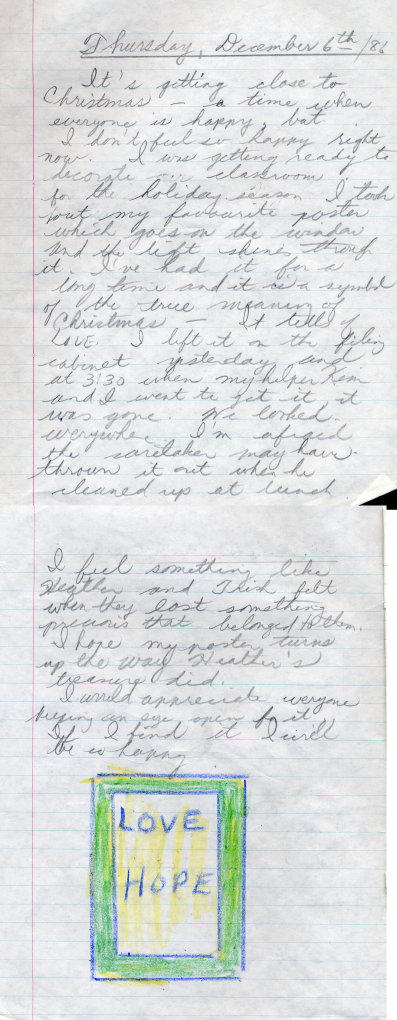 Thursday, December 6th/86
It's getting close to
Christmas – a time when
everyone is happy, but
I don't feel so happy right
now. I was getting ready to
decorate our classroom
for the holiday season. I took
out my favourite poster
which goes on the window
and the light shines through
it. I've had it for a
long time and it is a symbol
of the true meaning of
Christmas – It tells of
LOVE. I left it on the filing
cabinet yesterday and
at 3:30 when my helper Kim
and I went to get it, it
was gone. We looked
everywhere. I'm afraid
the caretaker may have
thrown it out when he
cleaned up at lunch.
I feel something like
Heather and Trish felt
when they lost something
precious that belonged to them.
I hope my poster turns
up the way Heather's
treasure did.
I would appreciate everyone
keeping an eye open for it.
If I find it I will
be so happy
LOVE
HOPE